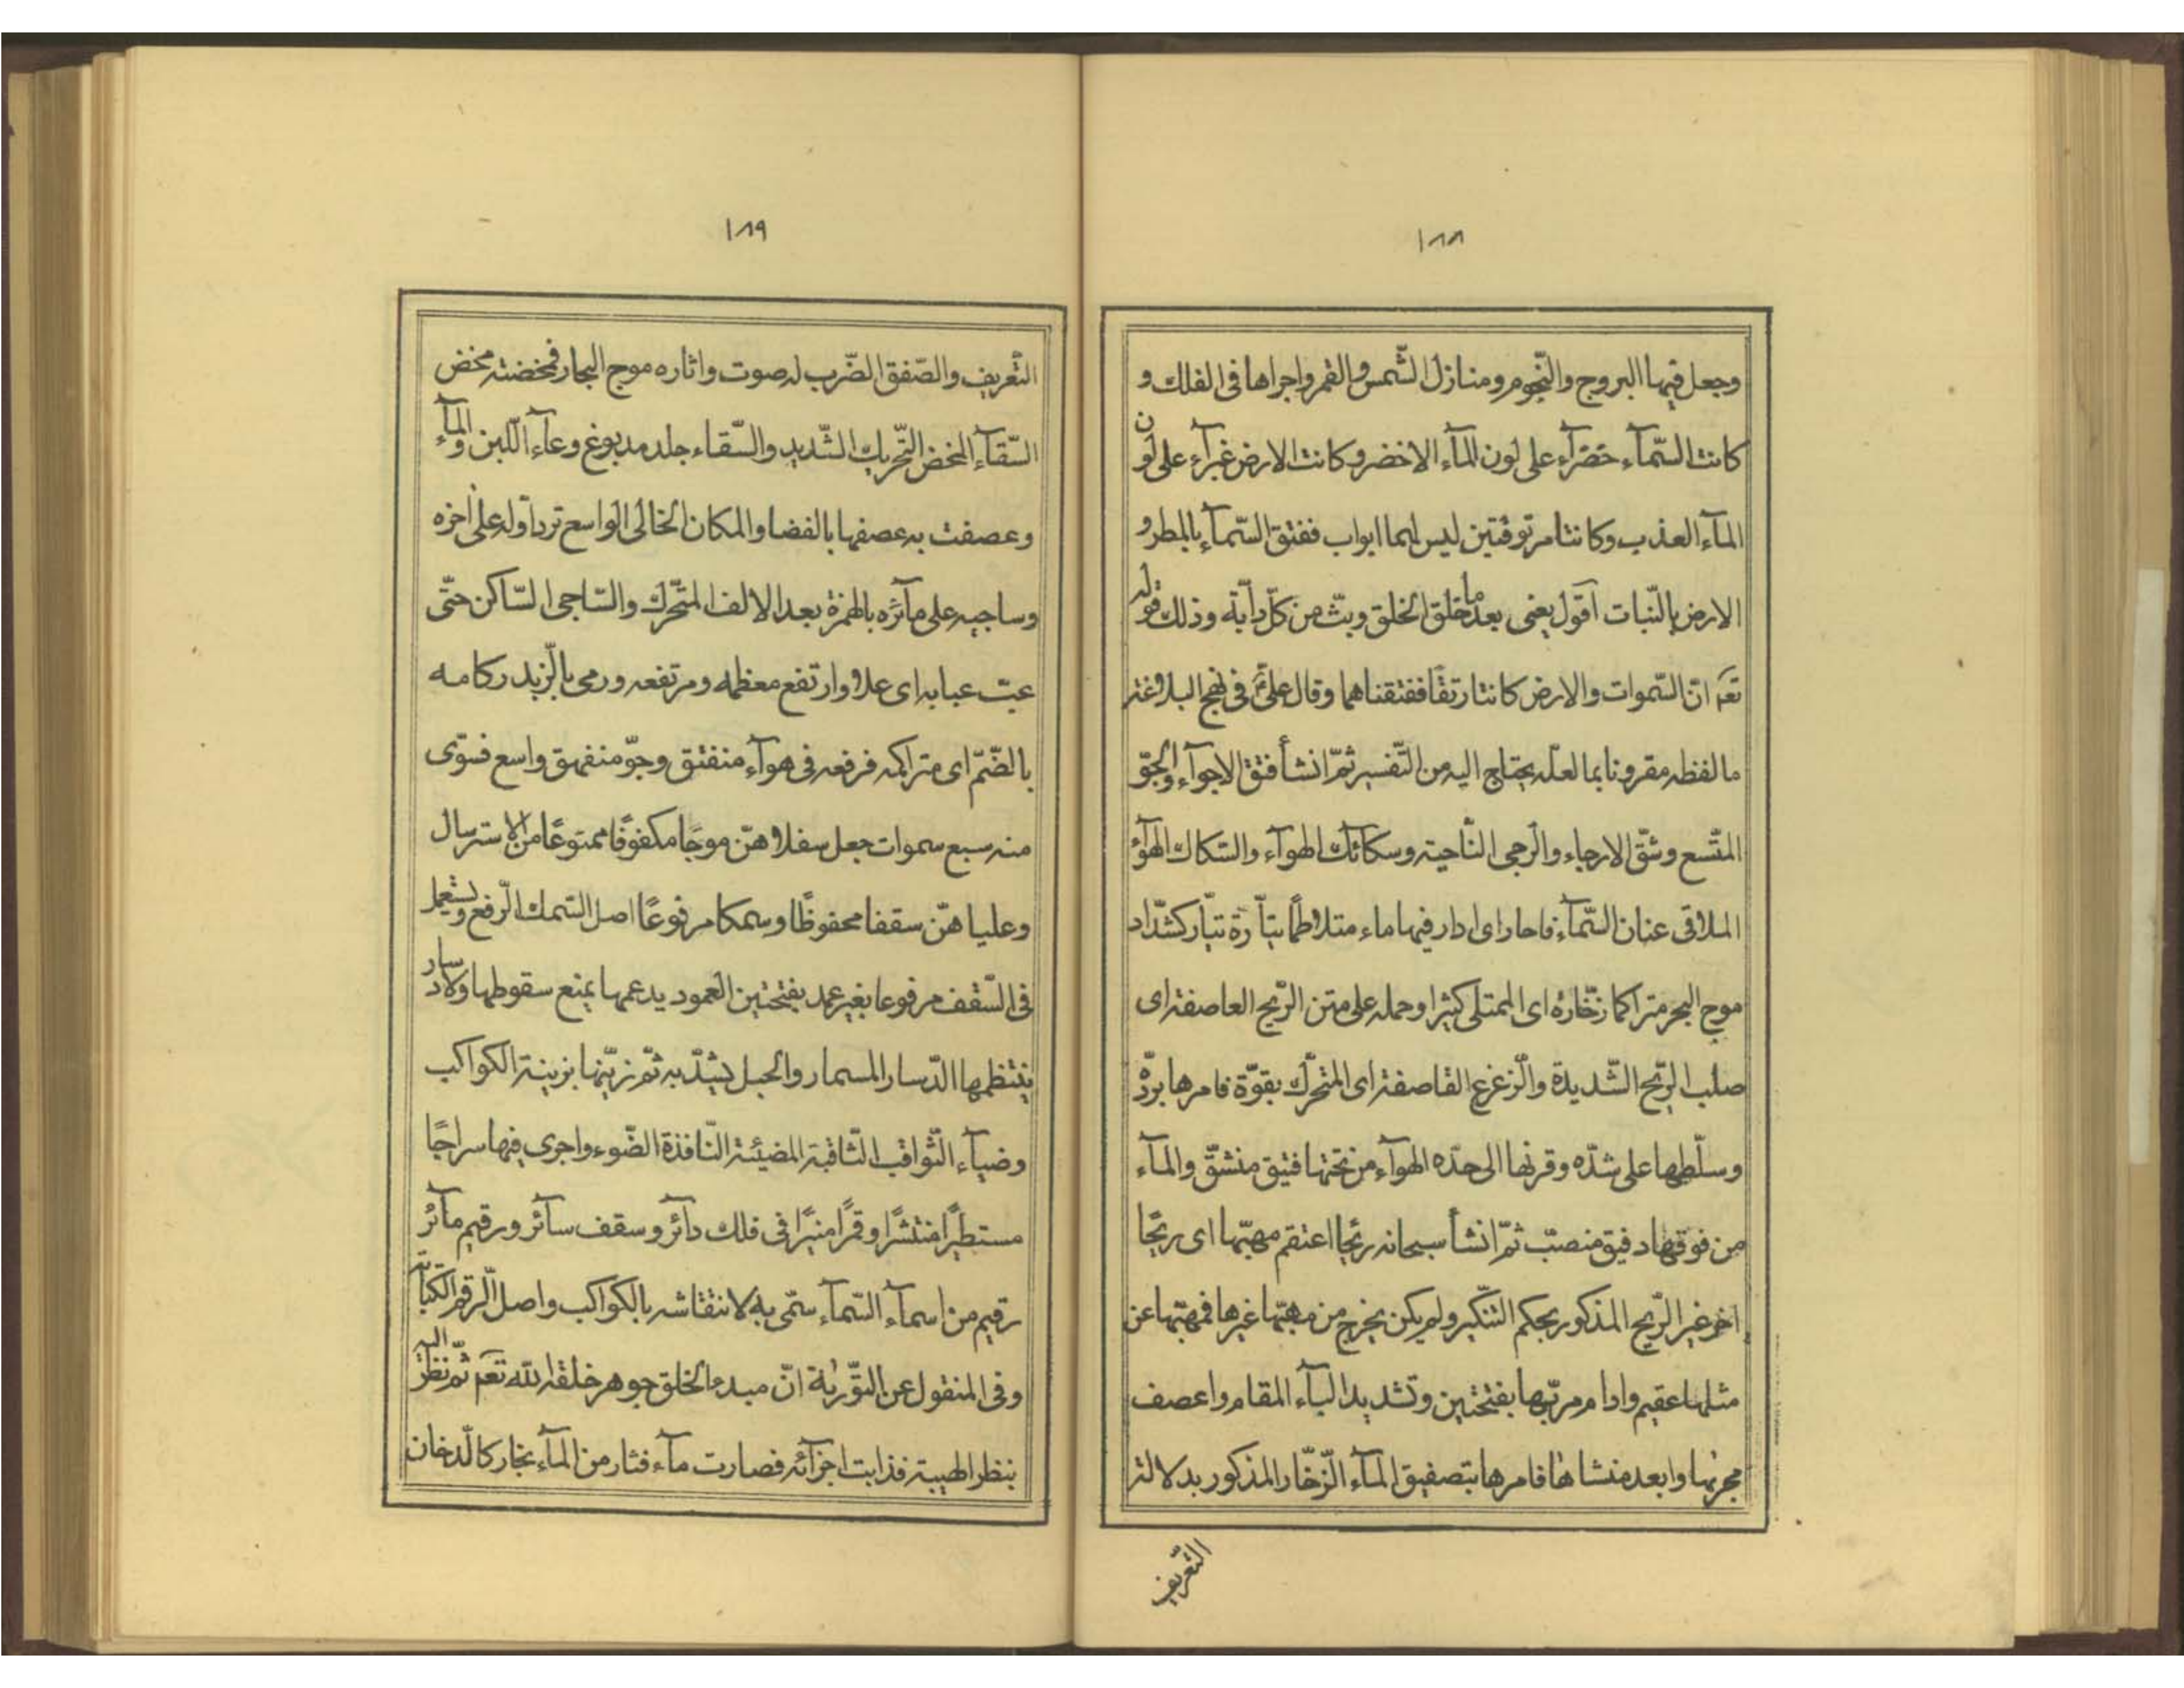 ١٨٨
وجعل فيها البروج والنّجوم ومنازل الشّمس والقمر واجراها فى الفلك و
كانت السّمآء خضرآء على لون المآء الاخضر وكانت الارض غبرآء على لون
المآء العذب وكانتا مرتوقتين ليس لهما ابواب ففتق السّمآء بالمطر و
الارض بالنّبات اقول يعنى بعد ما خلق الخلق وبثّ من كلّ دآبة وذلك قوله
تعه انّ السّموات والارض كانتا رتقًا ففتقناهما وقال علىّ فى نهج البلاغة
ما لفظه مقرونا بما لعلّه يحتاج اليه من التّفسير ثمّ انشأ فتق الاجوآء والجوّ
المتّسع وشقّ الارجاء والرجى النّاحية وسكآئك الهوآء والسّكاك الهوآؤ
الملاقى عنان السّمآء فاحار اى ادار فيها ماء متلاطمًا تيّآره تيّار كشدّاد
موج البحر متراكما زخّاره اى الممتلى كثيرا وحمله على متن الرّيح العاصفة اى
صلب الرّيح الشّديدة والزعزع القاصفة اى المتحرّك بقوّة فامرها بردّه
وسلّطها على شدّه وقرنها الى حدّه الهوآء من تحتها فتيق منشقّ والمآء
من فوقها دفيق منصبّ ثمّ انشأ سبحانه ريحًا اعتقم مهبّها اى ريحًا
اخر غير الرّيح المذكور بحكم التنكير ولم يكن يخرج من مهبّها غيرها فمهبّها عن
مثلها عقيم وادام مربّها بفتحتين وتشديد الباء المقام واعصف
مجريها وابعد منشاها فامرها بتصفيق المآء الزّخّار المذكور بدلالة
التّعريف
١٨٩
التّعريف والصّفق الضّرب له صوت واثاره موج البحار فمخضته مخض
السّقآء المخض التّحريك الشّديد والسّقاء جلد مدبوغ وعآء اللّبن والمآء
وعصفت به عصفها بالفضا والمكان الخالى الواسع تردّ اوله على اخره
وساجيه على مآئره بالهمزة بعد الالف المتحّرك والسّاجى السّاكن حتّى
عبّ عبابه اى علا وارتفع معظمه ومرتفعه ورمى بالزّبد ركامه
بالضّمّ اى متراكمه فرفعه فى هوآء منفتق وجوّ منفهق واسع فسوّى
منه سبع سموات جعل سفلاهنّ موجًا مكفوفًا ممتوعًا من الاسترسال
وعلياهنّ سقفا محفوظًا وسمكا مرفوعًا اصل السّمك الرّفع ويستعمل
فى السّقف مرفوعا بغير عمد بفتحتين العمود يدعمها يمنع سقوطها ولا دسار
ينتظمها الدّسار المسمار والحبل يشدّ به ثمّ زيّنها بزينة الكواكب
وضيآء الثّواقب الثّاقبة المضيئة النّافذة الضّوء واجرى فيها سراجًا
مستطيرًا منتشرًا وقمرًا منيرًا فى فلك دآئر وسقف سآئر ورقيم مآئر
رقيم من اسمآء السّمآء سمّى به لانتقاشه بالكواكب واصل الرقم الكتابة
وفى المنقول عن التّوّرية انّ مبدء الخلق جوهر خلقه الله تعه ثمّ نظر اليه
بنظر الهيبة فذابت اجزآئه فصارت مآء فثار من المآء بخار كالدّخان